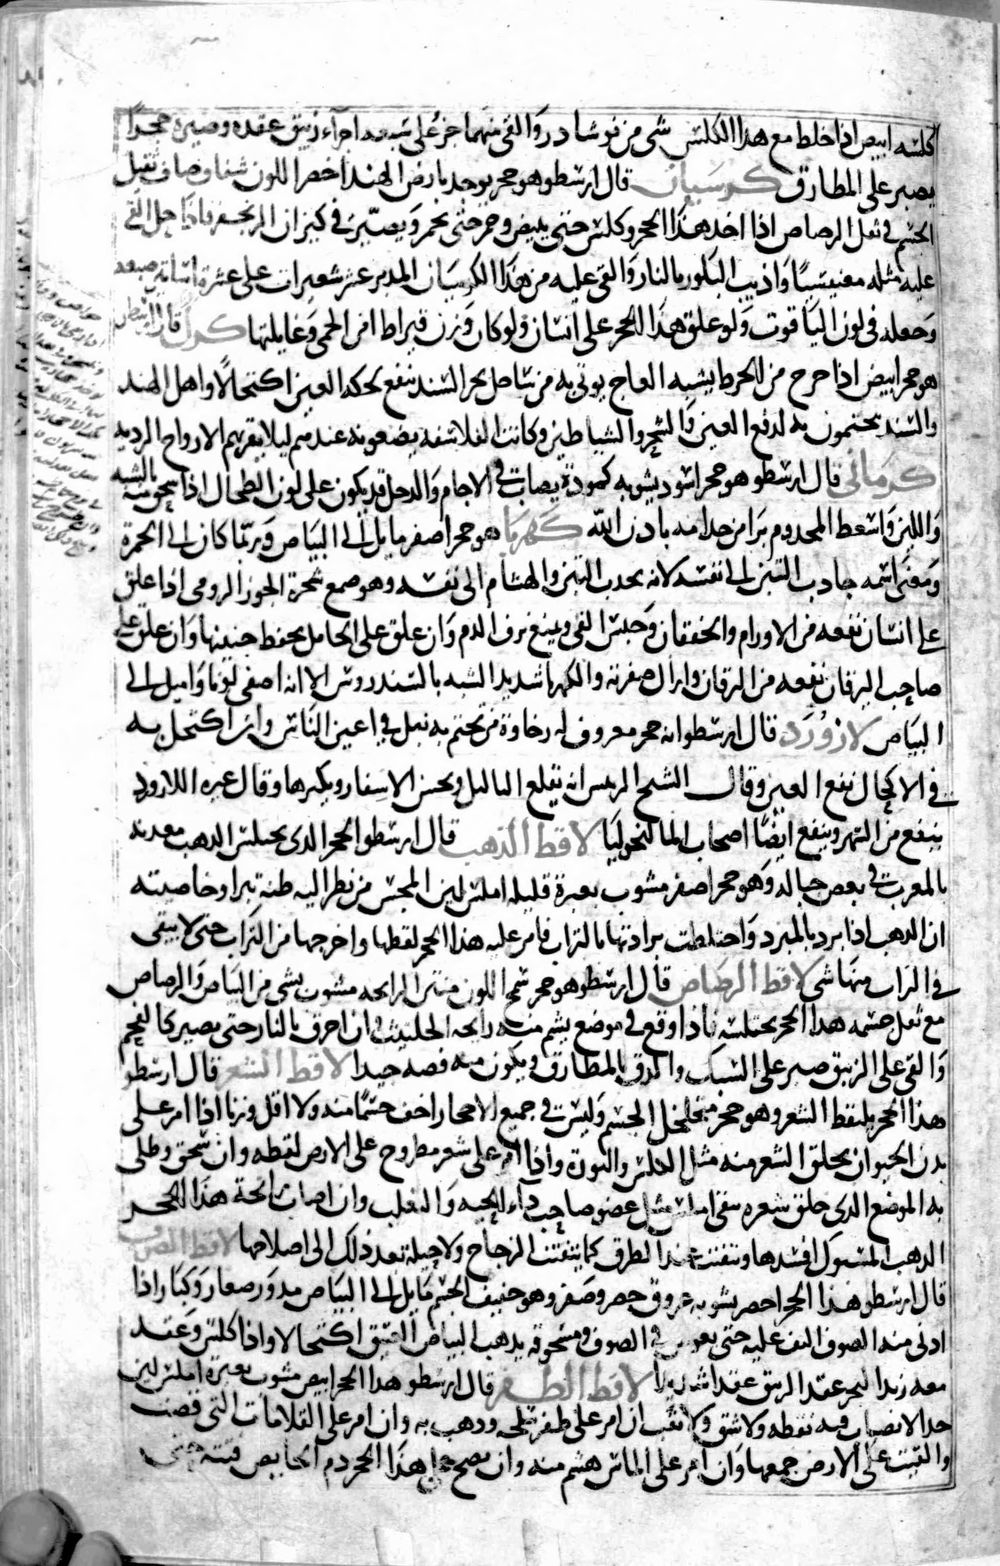 كلسه ابيض اذا خلط مع هذا الكلس شى من نوشادر والقى منهما جزء على سبعه اجزاء زيبق عقده وصيره حجرا
يصبر على المطارق كرسيان قال ارسطو هو حجر يوجد بارض الهند اخضر اللون شفاف صاف ثقيل
الجسم فى ثقل الرصاص اذا اخذ هذا الحجر وكلس حتى يبيض وحتى يحمر ويصير فى كيزان الزنجفر فاذا حل القى
عليه مثله مغنيسيا واذيب البلور بالنار والقى عليه من هذا الكرسيان المدبر عشر شعيرات على عشرة اساتير صبغه
وجعله فى لون الياقوت ولو علق هذا الحجر على انسان ولو كان وزن قيراط امن الحمى وغايلتها كرك قال ارسطو
هو حجر ابيض اذا خرج من الخرط يشبه العاج يوتى به من ساحل بحر السند ينفع لحكه العين اكتحالا واهل الهند
والسند يختمون به لدفع العين والسحر والشياطين وكانت الفلاسفه يضعونه عندهم ليلا يقربهم الارواح الرديه
كرمانى قال ارسطو هو حجر اسود يشوبه كمودة يصاب فى الاجام والدحل قد يكون على لون الطحال اذا سحق منه بالشبه
واللبن واسعط المجذوم برا من جذامه باذن الله كهربا هو حجر اصفر مايل الى البياض وربما كان الى الحمرة
ومعنى اسمه جاذب التبن الى نفسه لانه يجذب التبن والهشام الى نفسه وهو صمغ شجرة الجوز الرومى اذا علق
على انسان نفعه من الاورام والخفقان وحبس القى ويمنع نزف الدم وان علق على الحامل يحفظ جنينها وان علق على
صاحب اليرقان نفعه من اليرقان وازال صفرته والكهربا شديد الشبه بالسندروس الا انه اصفى لونا واميل الى
البياض لازورد قال ارسطو انه حجر معروف له رخاوة من تختم به نبل فى اعين الناس وان اكتحل به
فى الاكحال نفع العين وقال الشيخ الريس انه يقلع الثاليل ويحسن الاسفار ويكثرها وقال غيره اللازورد
ينفع من السهر وينفع ايضا اصحاب المالنخوليا لاقط الذهب قال ارسطو الحجر الذى يختلس الذهب معدنه
بالمغرب فى بعض جباله وهو حجر اصفر مشوب بغبرة قليله املس لين المجس من نظر اليه ظنه تبرا وخاصيته
ان الذهب اذا برد بالمبرد واختلطت برادتها بالتراب فامر عليه هذا الحجر لقطها واخرجها من التراب حتى لا يبقى
فى التراب منها شى لاقط الرصاص قال ارسطو هو حجر سمج اللون منتن الرايحه مشوب بشى من البياض والرصاص
مع ثقل جسمه هذا الحجر يختلسه فاذا وقع فى موضع يشم منه رايحه الحلتيت فان احرق بالنار حتى يصير كالفحم
والقى على الزيبق صبر على السبك والدق بالمطارق ويكون منه فضه جيدا لاقط الشعر قال ارسطو
هذا الحجر يلقط الشعر وهو حجر متخلخل الجسم وليس فى جميع الاحجار اخف جسما منه ولا اقل وزنا اذا امر على
بدن الحيوان يحلق الشعر منه مثل الحلس والنورة واذا امر على شعر مطروح على الارض لقطه وان سحق وطلى
به الموضع الذى حلق شعره بقى املس مثل عضو صاحب داء الحيه والثعلب وان اصاب رائحة هذا الحجر
الذهب المسبوك افسدها وتفتت عند الطرق كما يتفتت الزجاج ولا حيلة بعد ذلك الى اصلاحها لاقط الصوف
قال ارسطو هذا الحجر اخضر يشوبه عروق خضر وصفر وهو خفيف الجسم مايل الى البياض مدور صغار وكبار اذا
ادنى منه الصوف التف عليه حتى يغوص فى الصوف ومسحوقه يذهب البياض العتيق اكتحالا واذا كلس وعقد
معه زبد البحر عقد الزيبق عقدا شديدا لاقط الظفر قال ارسطو هذا الحجر ابيض مشوب بغبرة املس لين
جدا لا يصاب فيه نقطه ولا شق ولا ثقب ان امر على ظفر قلعه وذهب به وان امر على القلامات التى قصت
والقيت على الارض جمعها وان امر على الماس هشم منه وان نصح على هذا الحجر دم الحايض فتته حتى